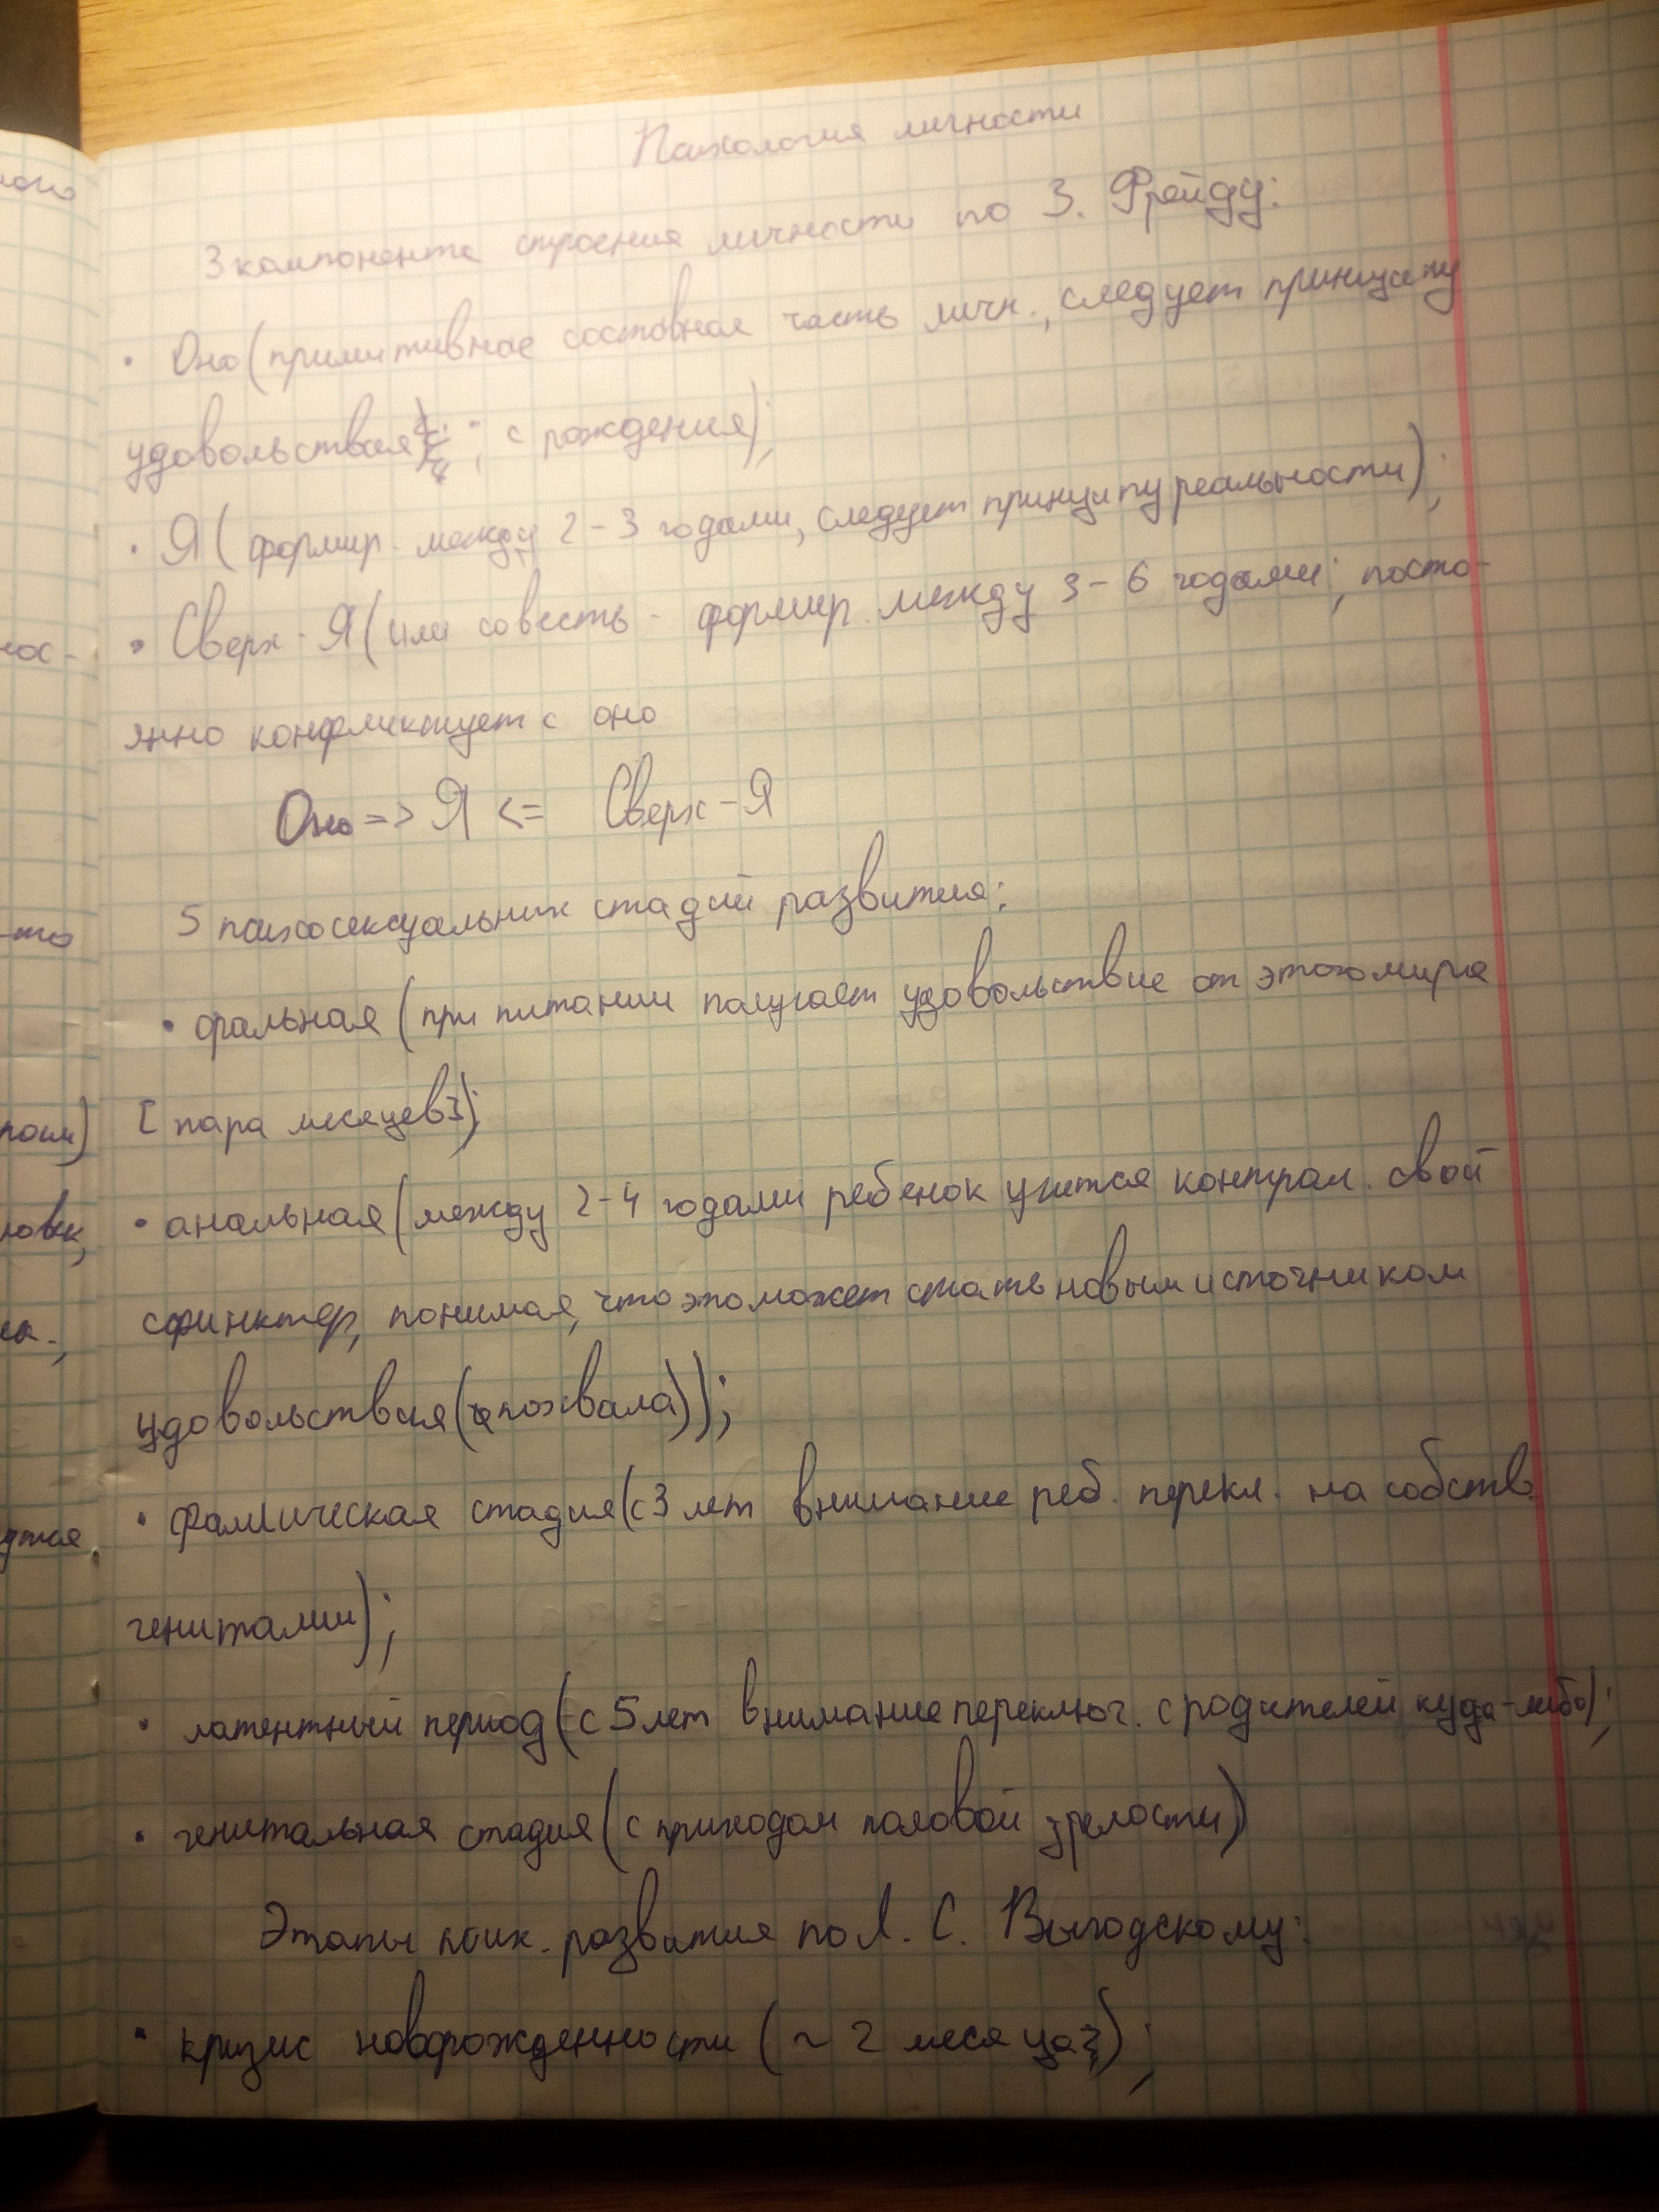 Психология личности
3 компонента строения личности по З. Фрейду:
• Оно (примитивная составная часть личн., следует принципу
удовольствия; с рождения);
• Я ( формир. между 2-3 годами, следует принципу реальности);
• Сверх-Я (или совесть - формир. между 3-6 годами; посто-
янно конфликтует с оно
Оно => Я <= Сверх-Я
5 психосексуальных стадий развития:
• оральная (при питании получает удовольствие от этого мира
[пара месяцев]);
• анальная (между 2-4 годами ребенок учится контрол. свой
сфинктер, понимая, что это может стать новым источником
удовольствия (похвала));
• фаллическая стадия (с 3 лет внимание реб. перекл. на собств.
гениталии);
• латентный период (с 5 лет внимание переключ. с родителей куда-либо);
• генитальная стадия (с приходом половой зрелости)
Этапы псих. развития по Л. С. Выгодскому:
• кризис новорожденности (~ 2 месяца);